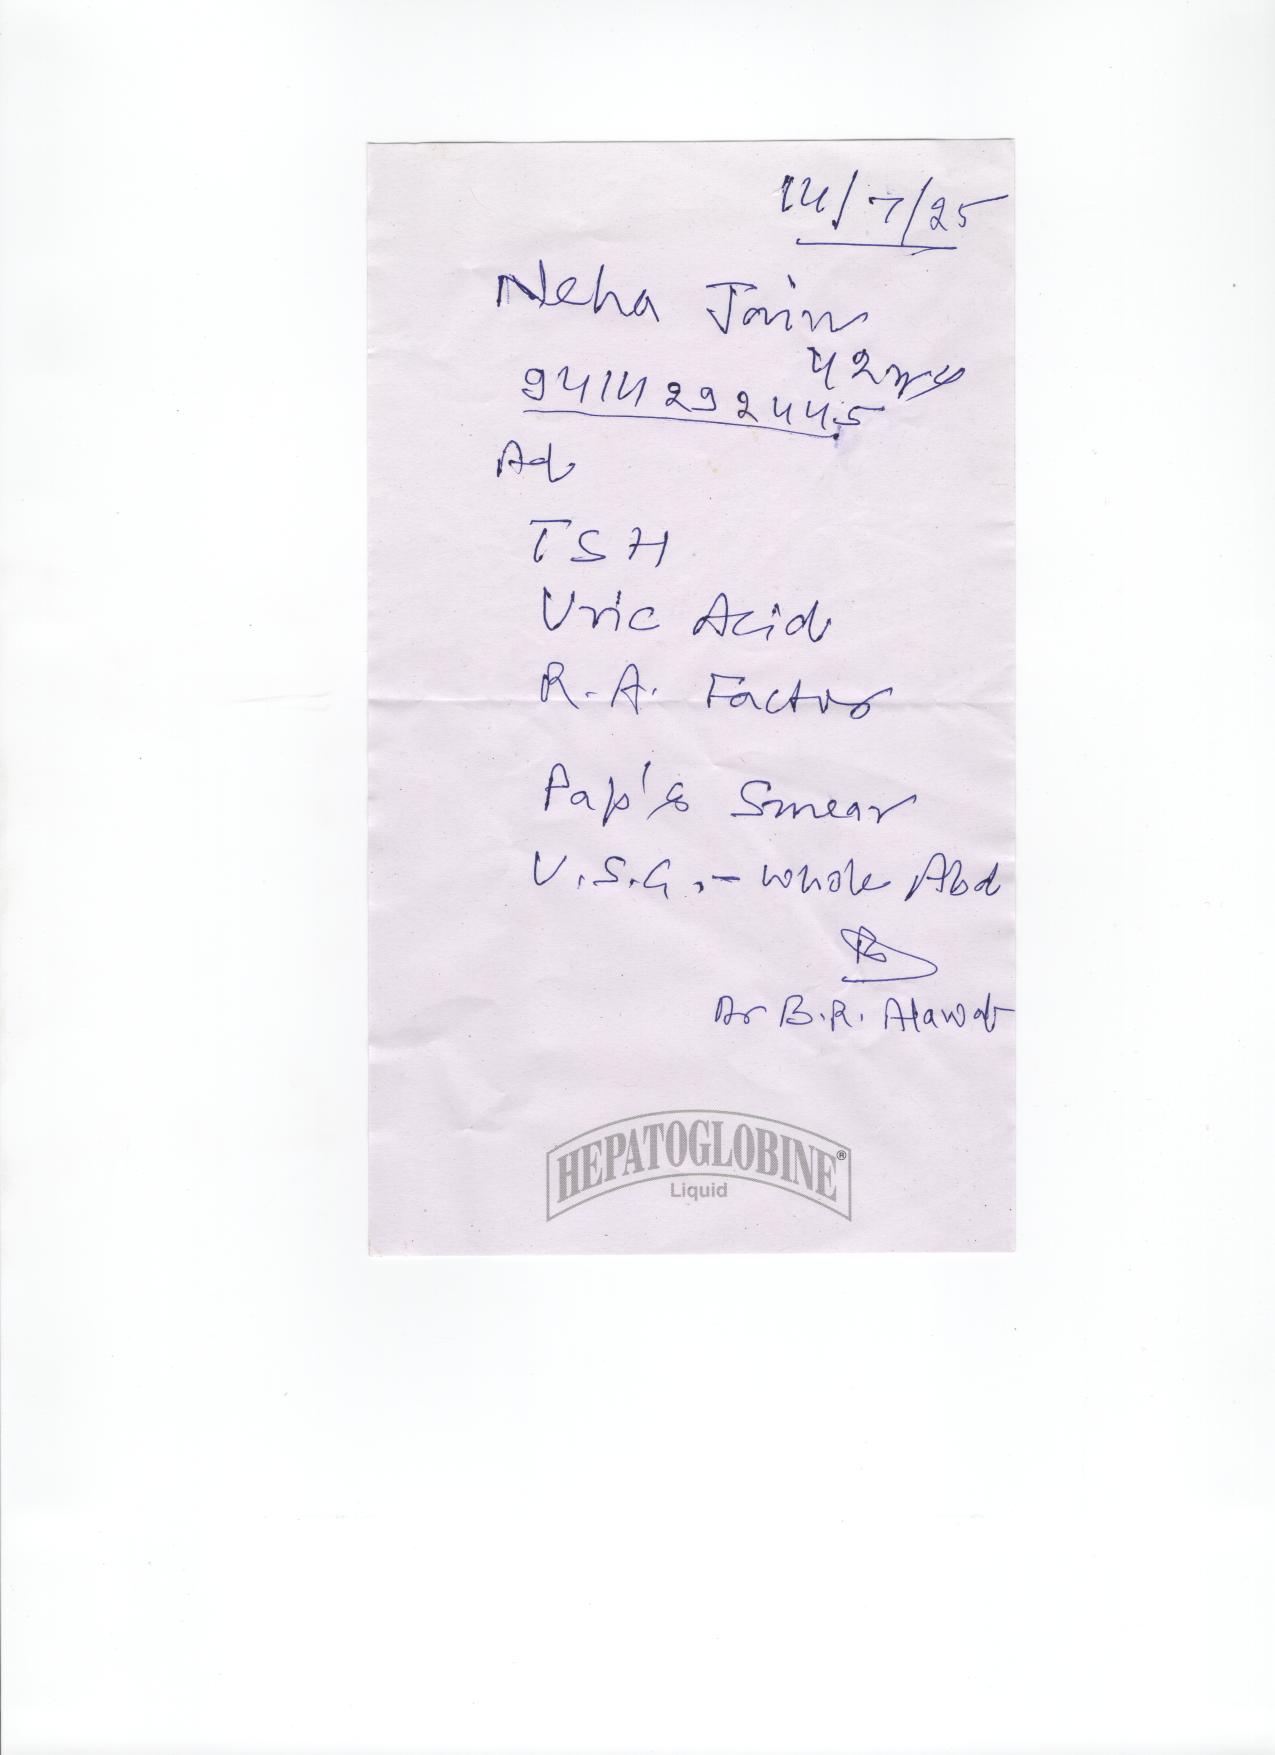 14/7/25
Neha Jain
42 yrs
9414292445
Ad
TSH
Uric Acid
R.A. Factor
Pap's Smear
U.S.G. - Whole Abd
Dr B.R.
HEPATOGLOBINE®
Liquid